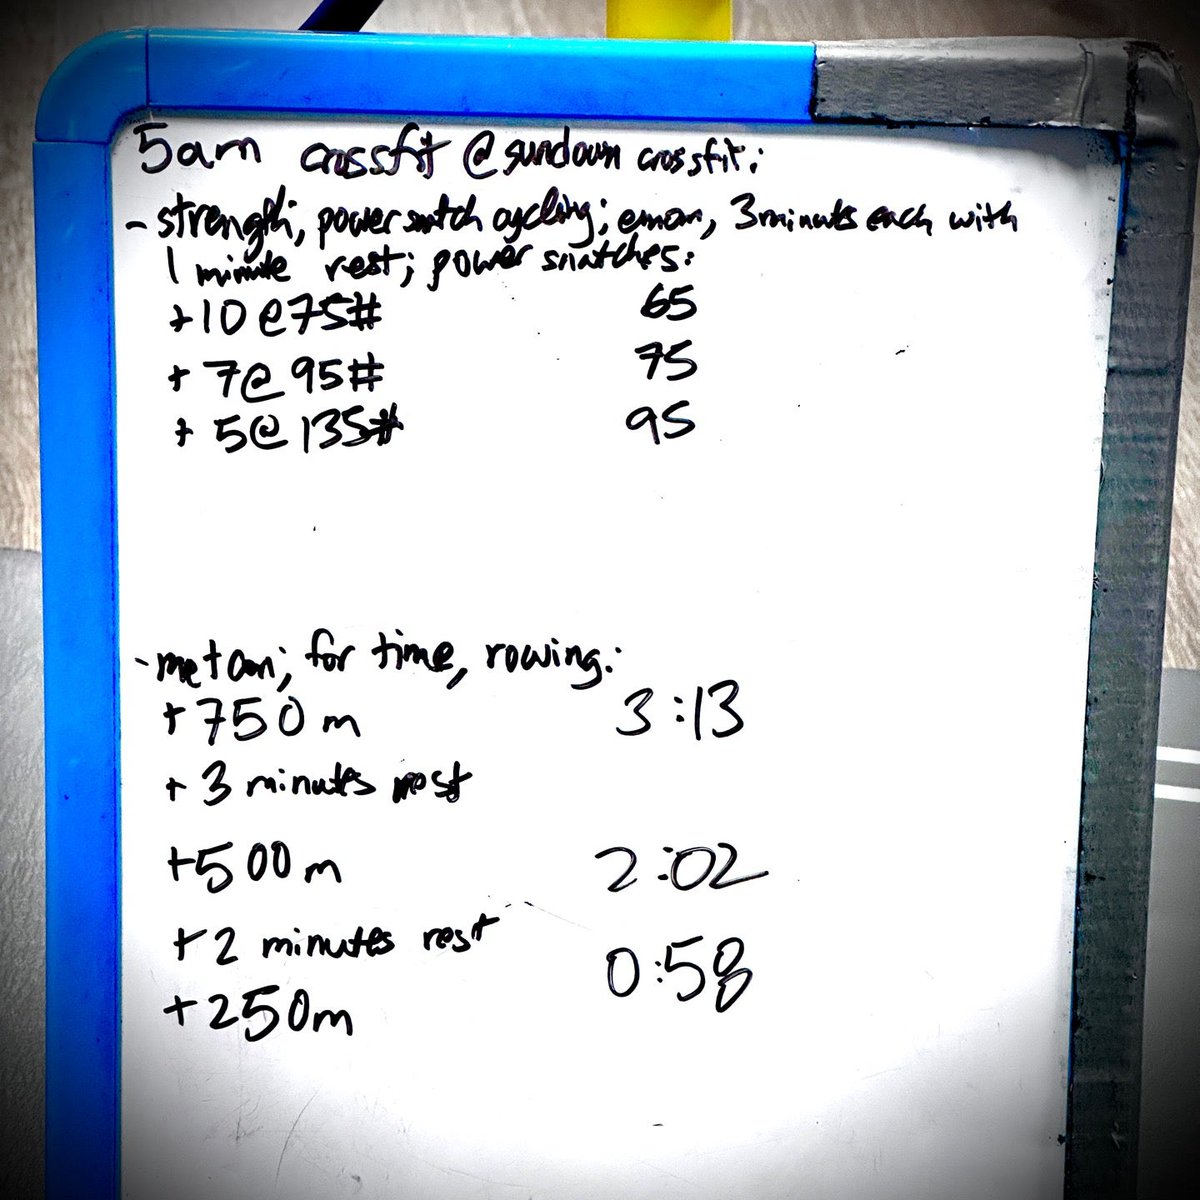 5am crossfit @ sundown crossfit:
- strength; power snatch cycling; emom, 3 minutes each with
1 minute rest; power snatches:
+ 10 @ 75# 65
+ 7 @ 95# 75
+ 5 @ 135# 95
- metcon; for time, rowing:
+ 750 m 3:13
+ 3 minutes rest
+ 500 m 2:02
+ 2 minutes rest
+ 250m 0:58